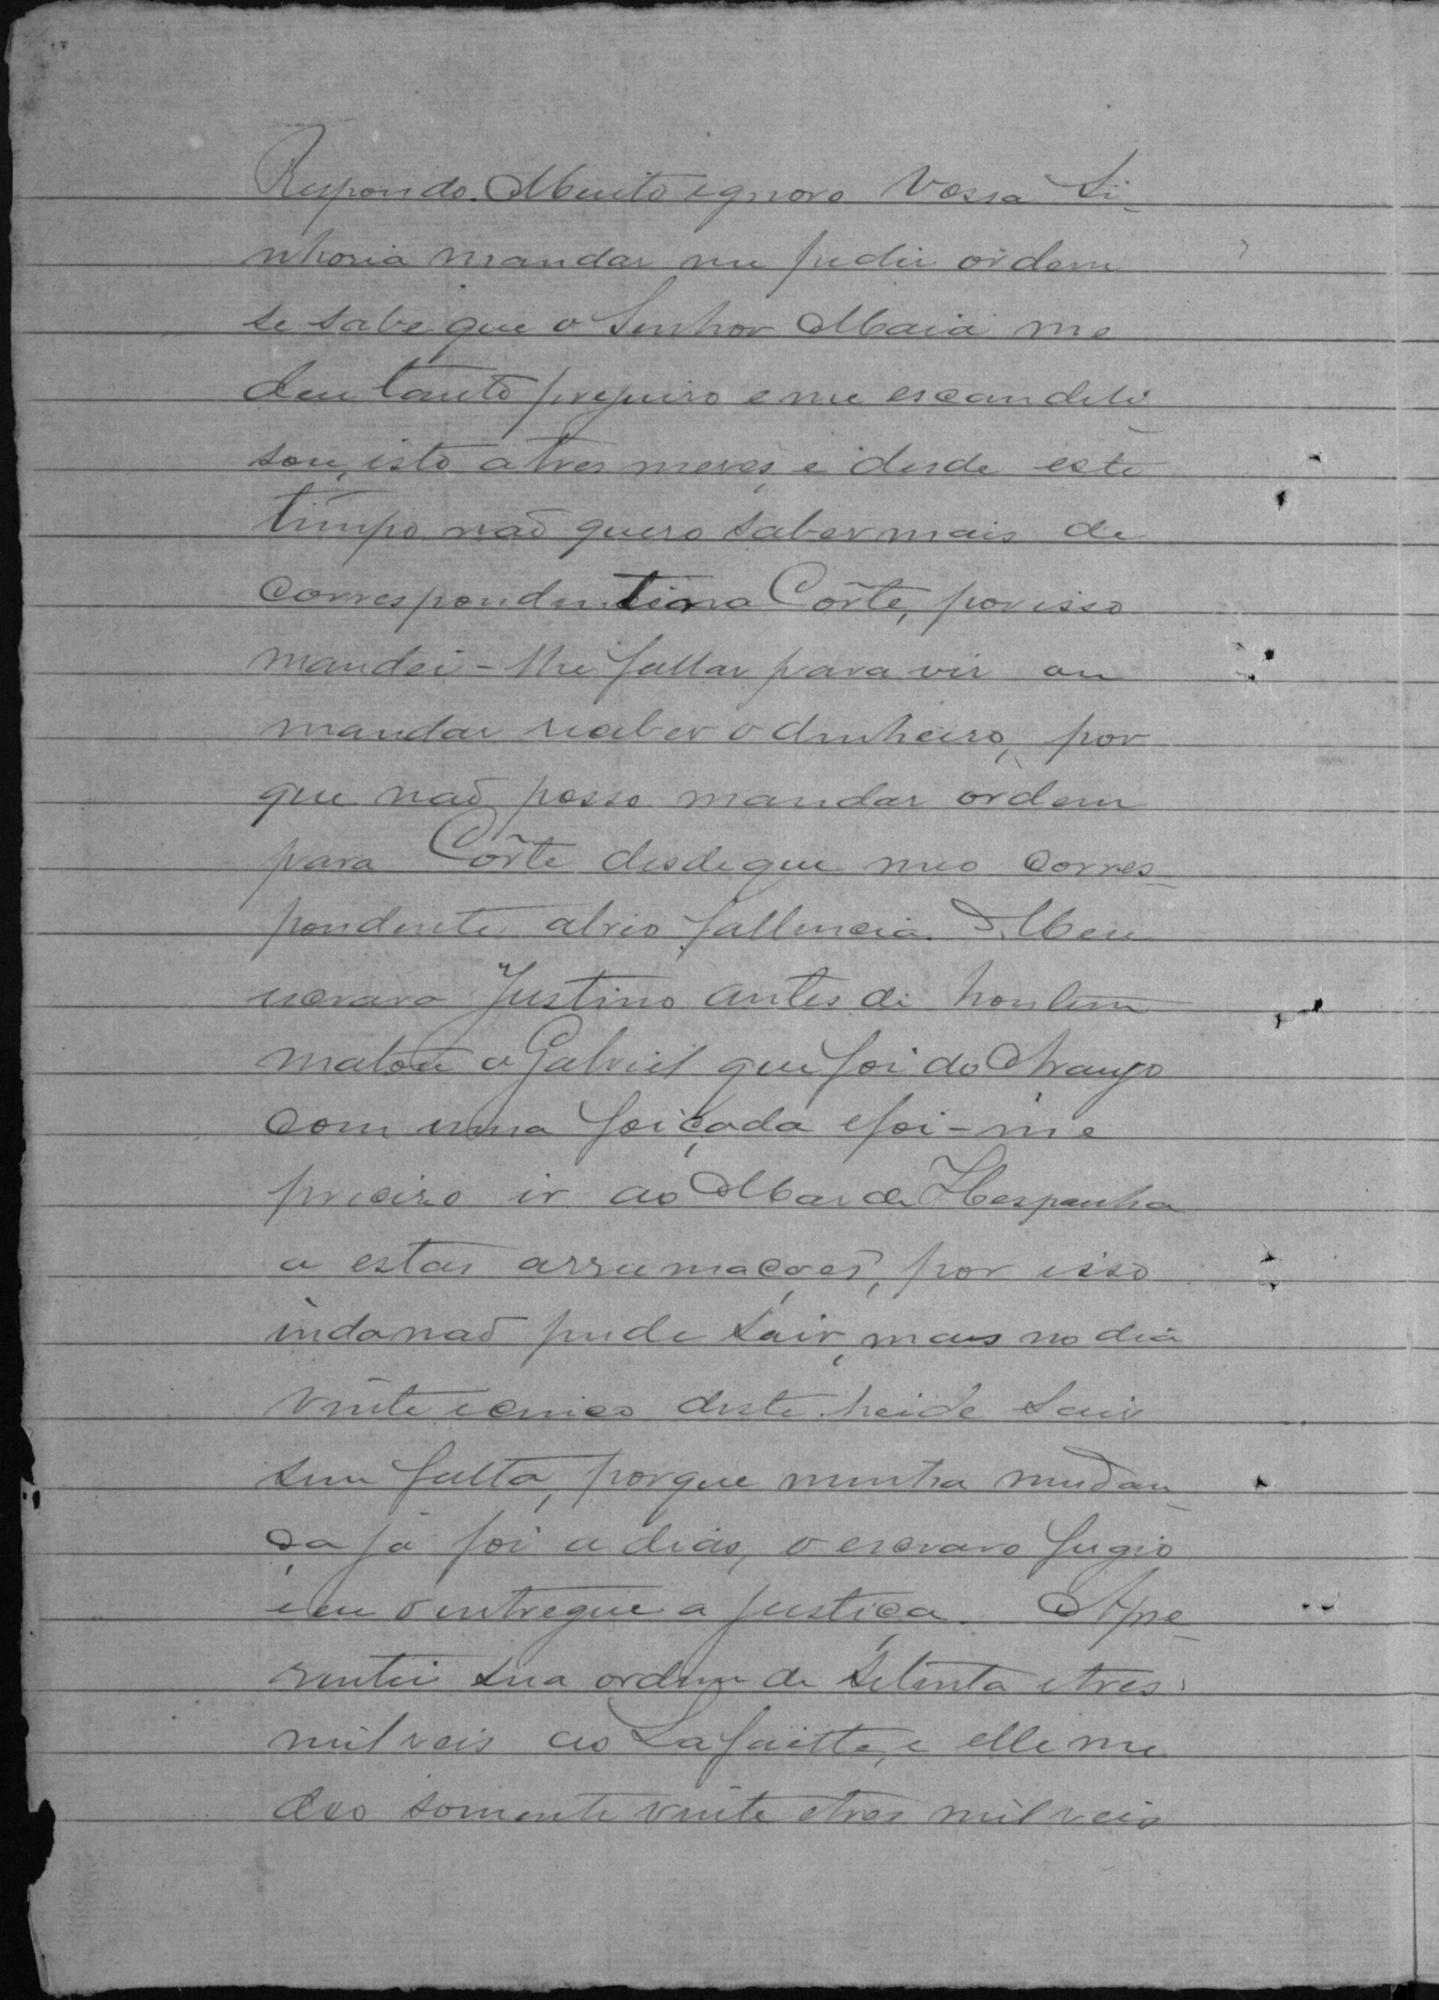 Respondo. Muito ignoro Vossa Si-
nhoria mandar me pedir ordem
se sabe que o Senhor Maia me
deu tanto prejuiso e me escandeli
sou, isto a tres meses, e desde este
timpo naõ quero saber mais de
correspondente na Côrte, por isso
mandei-lhe fallar para vir ou
mandar receber o dinheiro, por
que naõ posso mandar ordem
para Côrte desde que meo corres-
pondente abrio fallencia. Meu
escravo Justino antes de hontem
matou o Gabriel que foi do Araujo
com uma foiçada e foi-me
preciso ir ao Mar de Hespanha
a estas arrumações, por isso
inda naõ pude sair, mas no dia
vinte e cinco deste heide sair
sem falta, porque minha mudan-
ça já foi a dias, o escravo fugio
e eu o entregue a justiça. Apre-
sentei sua ordem de setenta e tres
mil reis ao Lafaiette, e elle me
deo somente vinte e tres mil reis